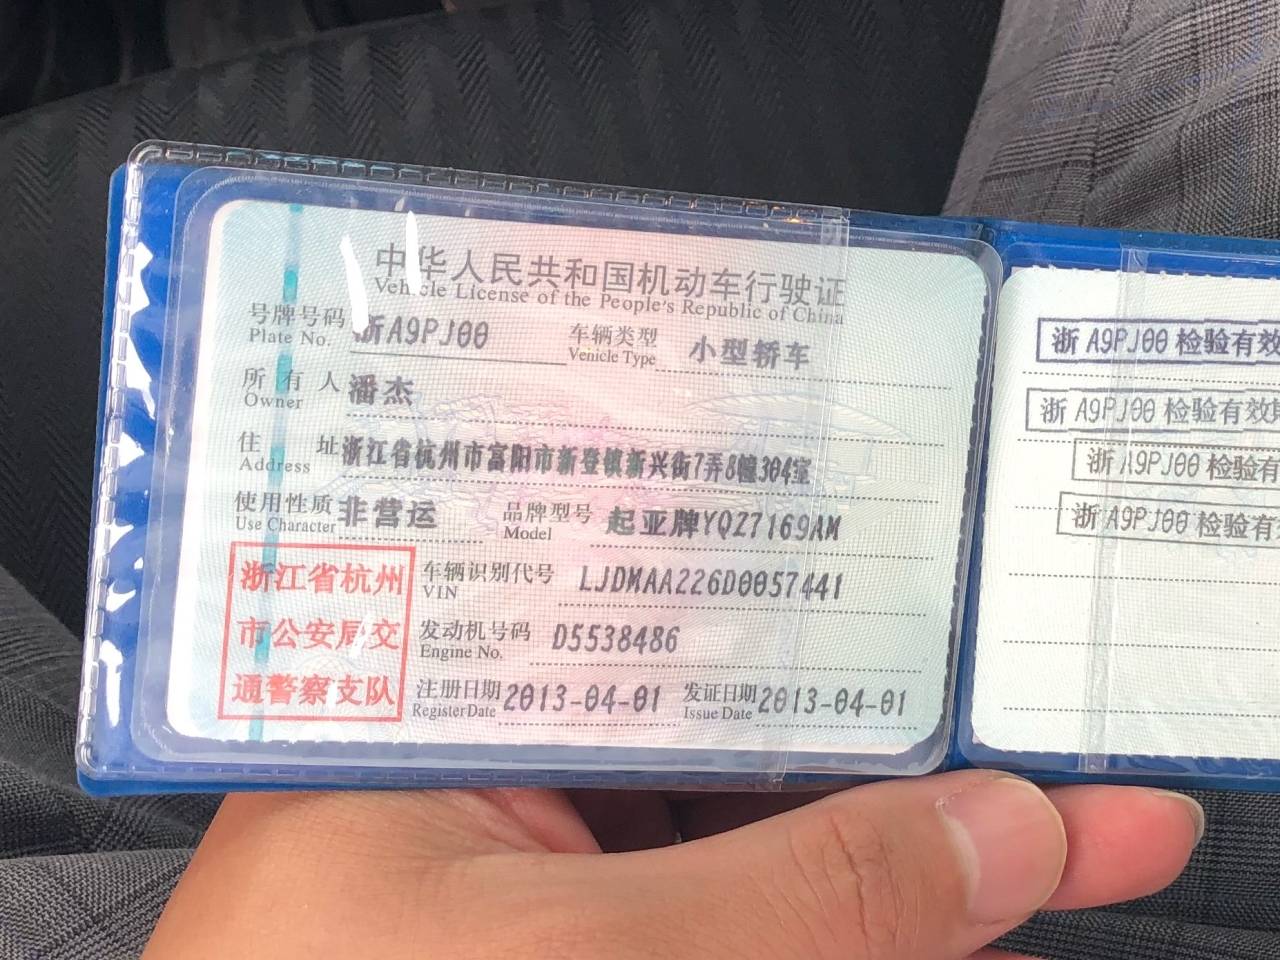 中华人民共和国机动车行驶证
Vehicle License of the People's Republic of China
号牌号码 浙A9PJ00 车辆类型 小型轿车
Plate No. Vehicle Type
所有人 潘杰
Owner
住址 浙江省杭州市富阳市新登镇新兴街7弄8幢304室
Address
使用性质 非营运 品牌型号 起亚牌YQZ7169AM
Use Character Model
浙江省杭州
市公安局交
通警察支队
车辆识别代号 LJDMAA226D0057441
VIN
发动机号码 D5538486
Engine No.
注册日期 2013-04-01 发证日期 2013-04-01
Register Date Issue Date
浙A9PJ00检验有效
浙A9PJ00检验有效
浙A9PJ00检验有
浙A9PJ00检验有